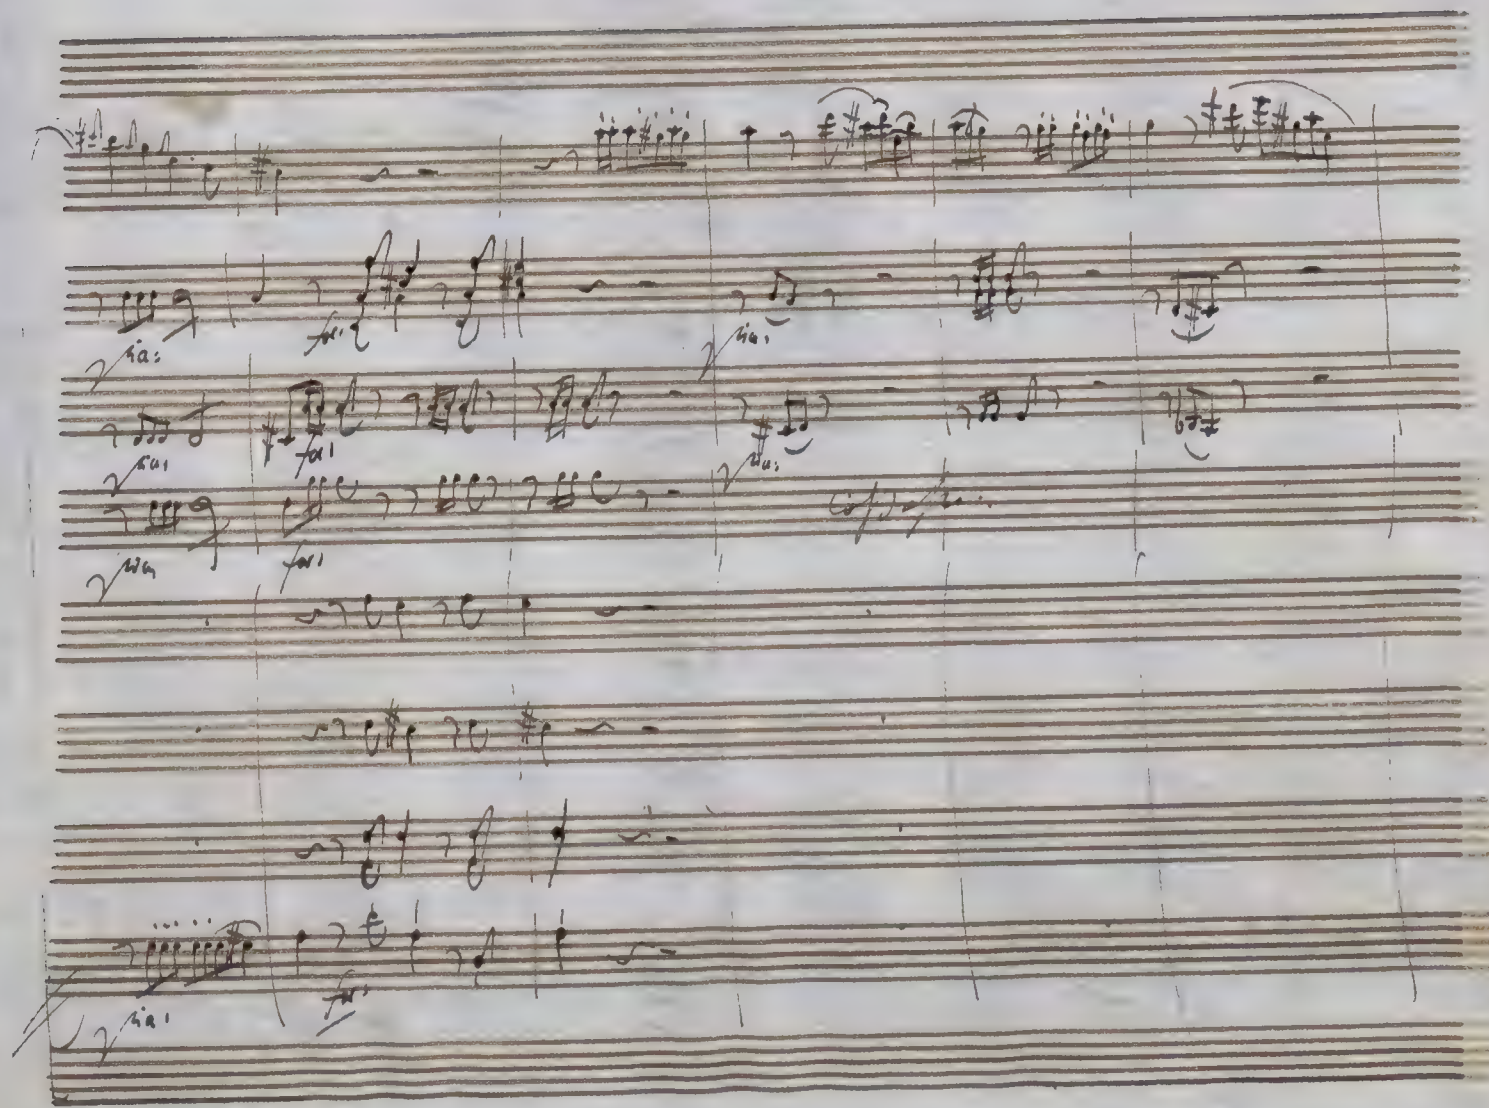 for:
pia:
pia:
pia:
for:
pia:
pia:
for:
pia:
for: